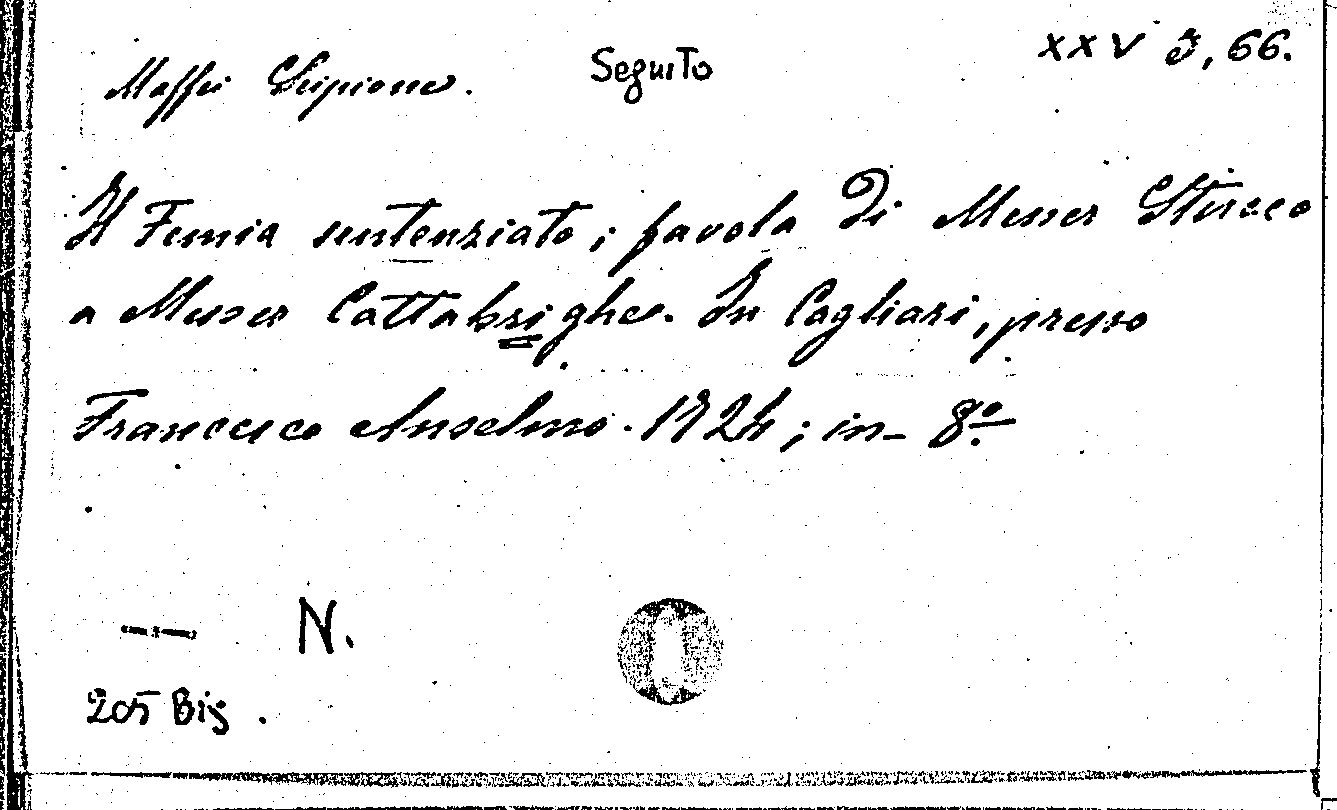 Maffei Scipione. Seguito XXV J, 66.
Il Femia sentenziato; favola di Messer Stucco
a Messer Cattabrighe. In Cagliari, presso
Francesco Anselmo. 1724; in-8º
N.
205 Bis.